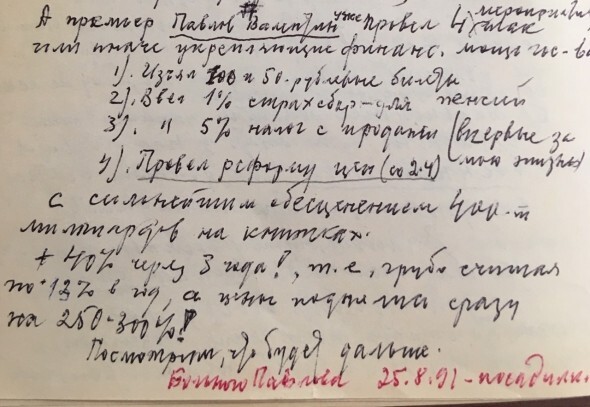 А премьер Павлов Валентин уже провел 4 мероприятия так
или иначе укрепляющие финанс. мощь гос-ва
1). Изъял 100 и 50.рублевые билеты
2). Ввел 1% страхсбор-для пенсий
3). " 5% налог с продажи (впервые за мою жизнь)
4). Провел реформу цен (со 2.4)
с сильнейшим обесценением 400-т
миллиардов на книжках.
+ 40% через 3 года!, т.е., грубо считая
по 12% в год, а цены подняли сразу
на 250-300%!
Посмотрим, что будет дальше.
Больного Павлова 25.8.91-посадили.